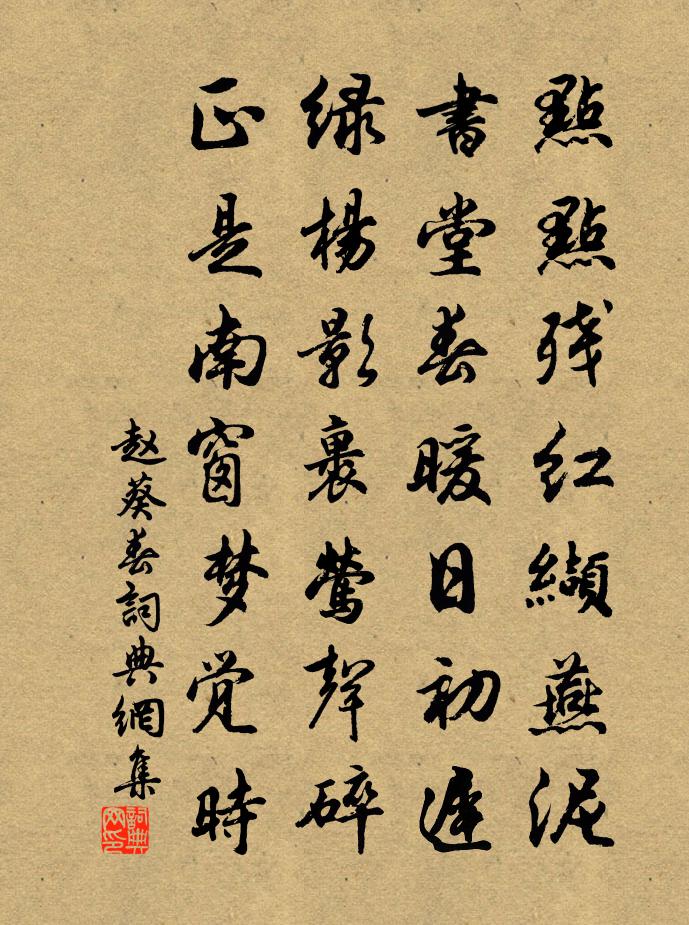 點點残红纈燕泥
書堂春暖日初遲
緑楊影裏鶯聲碎
正是南窗梦觉時
赵葵春詞典網集
詞典网印